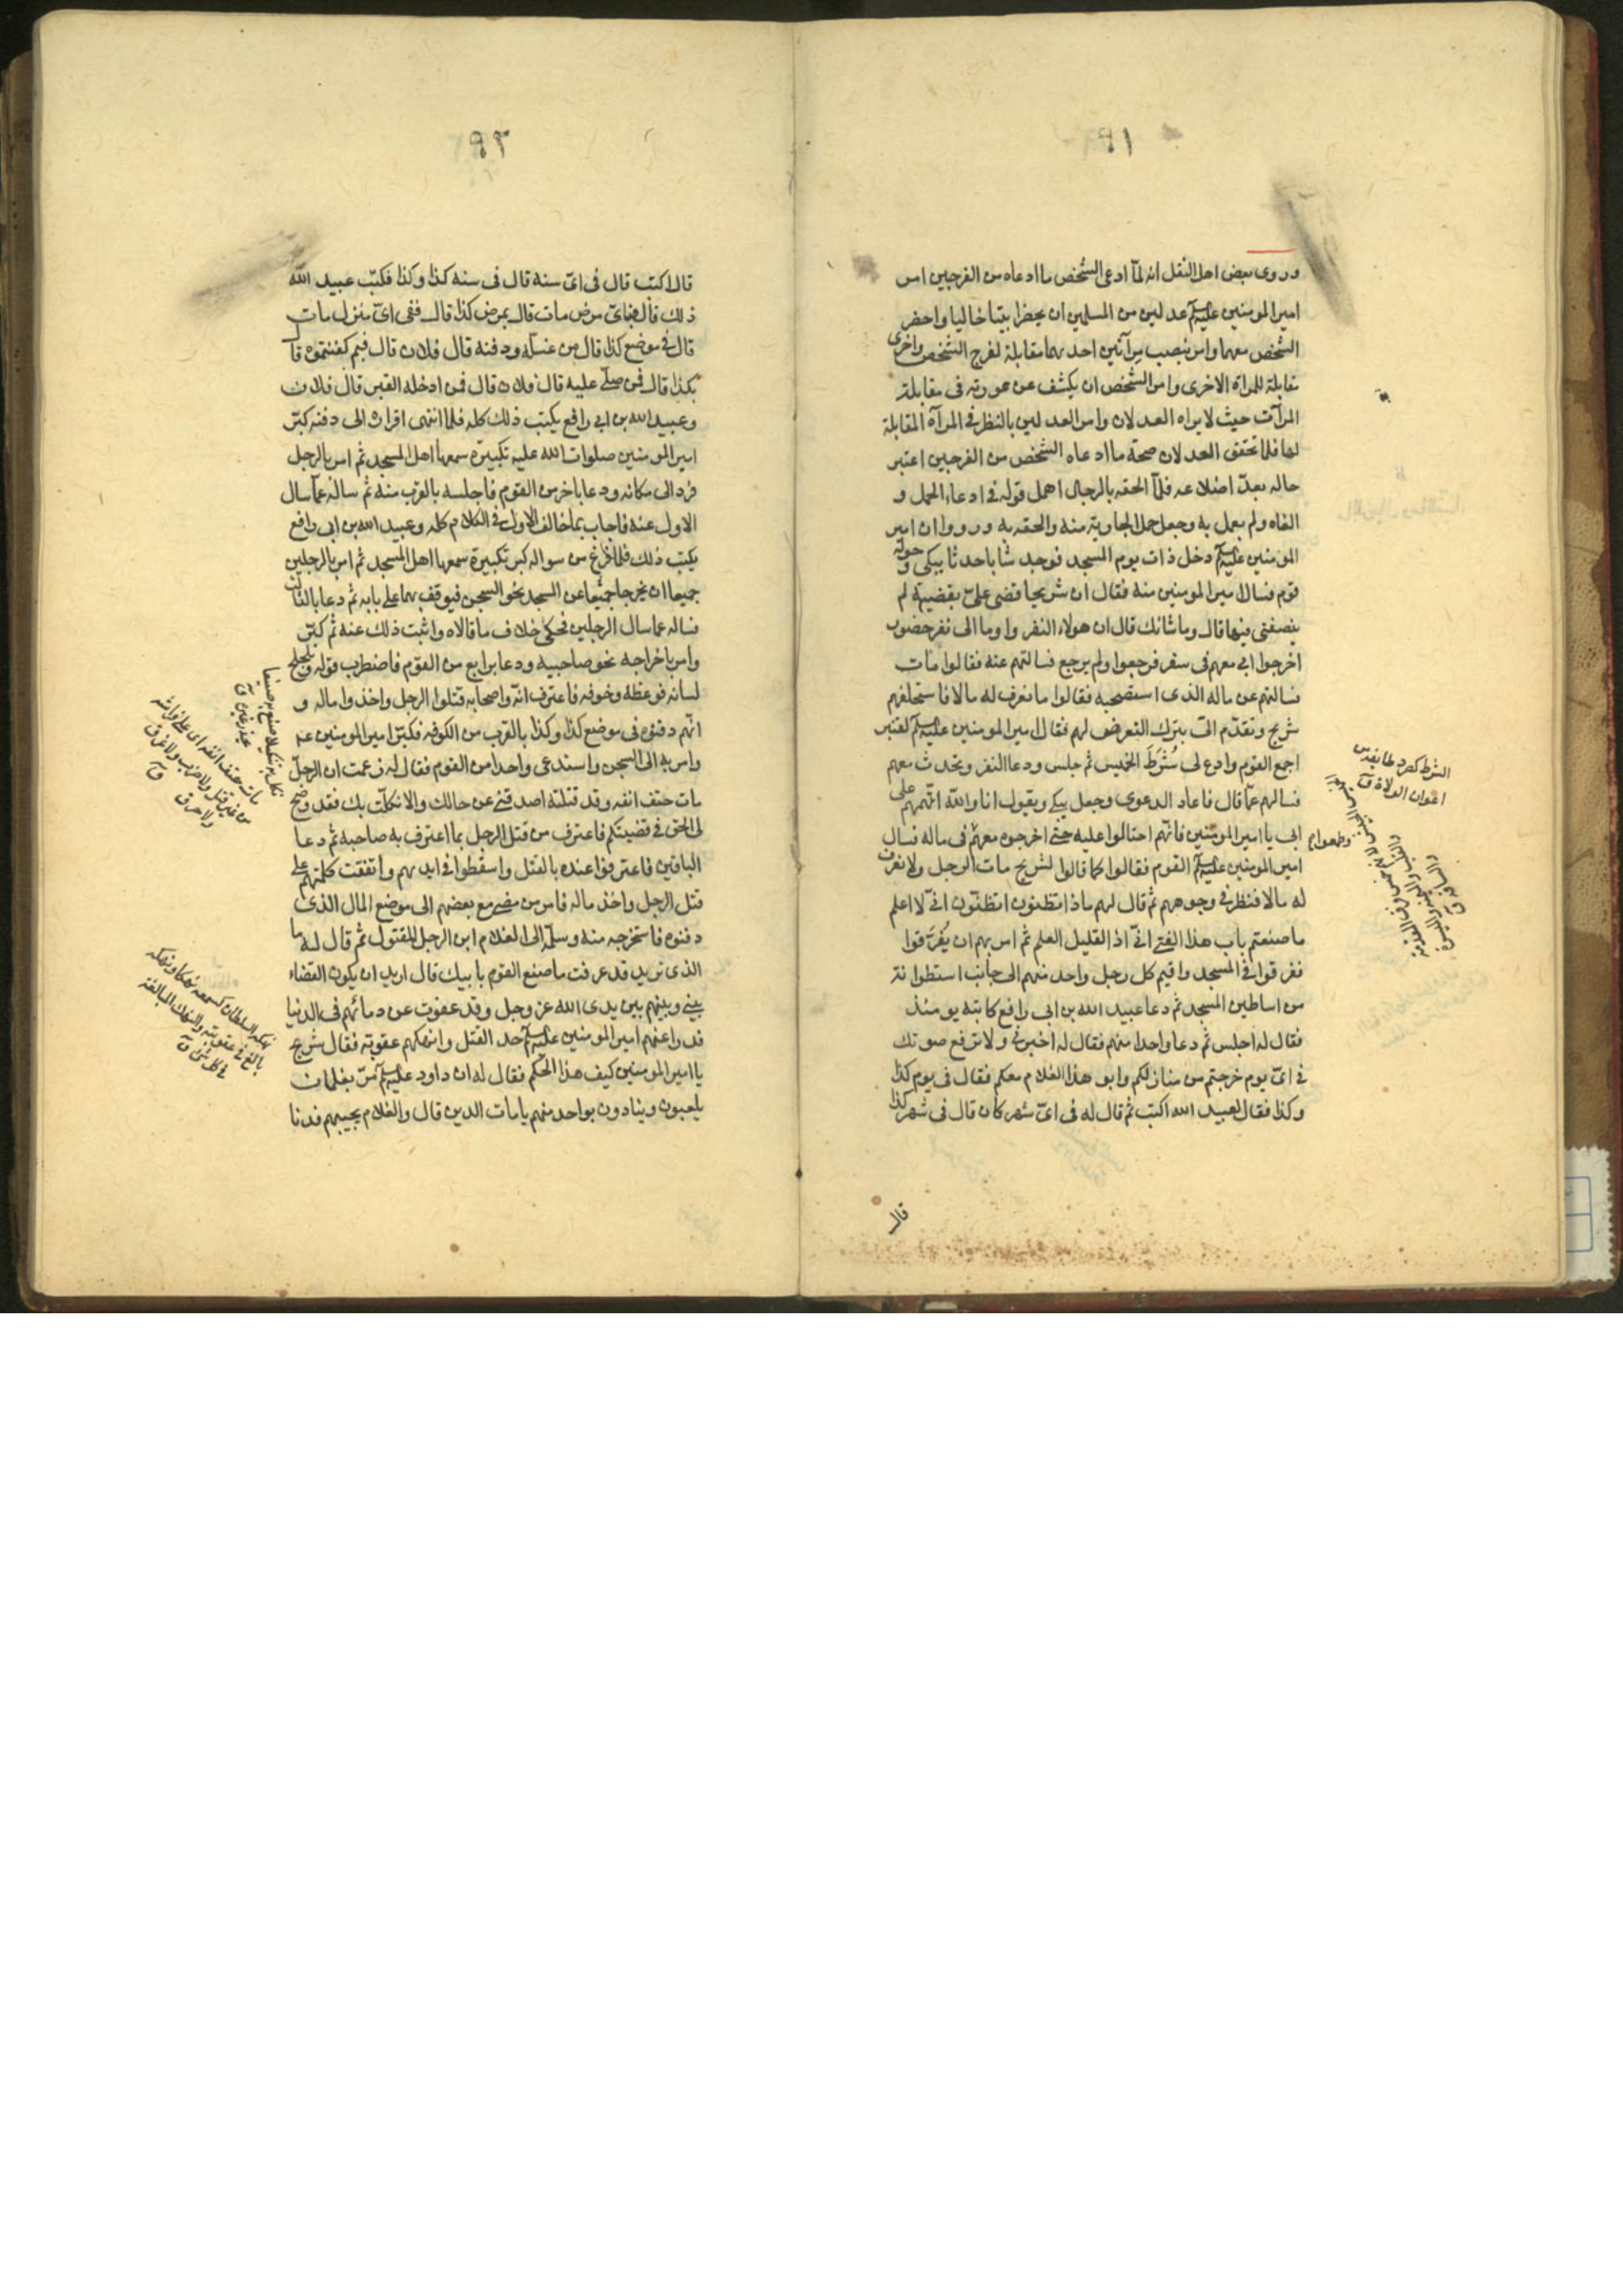 ٩١
وروى بعض اهل النقل انه لمّا ادعى الشخص ما ادعاه من الفرجين امر
امير المومنين عليه السلم عدلين من المسلمين ان يحضرا بيتا خاليا واحضر
الشخص معهما وامر بنصب مرآتين احدهما مقابلة لفرج الشخص واخرى
مقابلة للمراة الاخرى وامر الشخص ان يكشف عن عورته فى مقابلة
المرآت حيث لا يراه العدلان وامر العدلين بالنظر فى المرآة المقابلة
لها فلما تحقق العدلان صحة ما ادعاه الشخص من الفرجين اعتبر
حاله بعدّ اضلاعه فلمّا الحقه بالرجال اهمل قوله فى ادعاء الحمل و
الغاه ولم يعمل به وجعل حمل الجارية منه والحقه به ورووا ان امير
المومنين عليه السلم دخل ذات يوم المسجد فوجد شابا حدثا يبكى وحوله
قوم فسال امير المومنين منه فقال ان شريحا قضى علىّ بقضية لم
ينصفنى فيها قال وما شانك قال ان هولاء النفر واوما الى نفر حضور
اخرجوا ابى معهم فى سفر فرجعوا ولم يرجع فسالتهم عنه فقالوا مات
فسالتهم عن ماله الذى استصحبه فقالوا ما نعرف له مالا فاستحلفهم
شريح وتقدّم الىّ بترك التعرض لهم فقال امير المومنين عليه السلم لقنبر
اجمع القوم وادع لى شُرَطَ الخميس ثم جلس ودعا النفر والحدث معهم
فسالهم عمّا قال فاعاد الدعوى وجعل يبكى ويقول انا والله اتهمهم على
ابى يا امير المومنين فانهم احتالوا عليه حتى اخرجوه معهم وطمعوا فى ماله فسال
امير المومنين عليه السلم القوم فقالوا كما قالوا لشريح مات الرجل ولا نعرف
له مالا فنظر فى وجوههم ثم قال لهم ماذا تظنون اتظنّون انى لا اعلم
ما صنعتم باب هذا الفتى انى اذا لقليل العلم ثم امر بهم ان يُفَرَّقوا
ففرقوا فى المسجد واقيم كل رجل واحد منهم الى جانب اسطوانة
من اساطين المسجد ثم دعا عبيد الله بن ابى رافع كاتبه يومئذ
فقال له اجلس ثم دعا واحدا منهم فقال له اخبرنى ولا ترفع صوتك
فى اىّ يوم خرجتم من منازلكم وابو هذا الغلام معكم فقال فى يوم كذا
وكذا فقال لعبيد الله اكتب ثم قال له فى اىّ شهر كان قال فى شهر كذا
قال
الشرط كصرد طائفة من
اعوان الولاة ق
٩٢
قال اكتب قال فى اىّ سنة قال فى سنة كذا وكذا فكتب عبيد الله
ذلك قال فباىّ مرض مات قال بمرض كذا قال ففى اىّ منزل مات
قال فى موضع كذا قال من غسله ودفنه قال فلان قال فبم كفنتموه قال
بكذا قال فمن صلّى عليه قال فلان قال فمن ادخله القبر قال فلان
وعبيد الله بن ابى رافع يكتب ذلك كله فلما انتهى اقراره الى دفنه كبّر
امير المومنين صلوات الله عليه تكبيرة سمعها اهل المسجد ثم امر بالرجل
فردّ الى مكانه ودعا باخر من القوم فاجلسه بالقرب منه ثم ساله عمّا سال
الاول عنه فاجاب بما خالف الاول فى الكلام كله وعبيد الله بن ابى رافع
يكتب ذلك فلما فرغ من سواله كبر تكبيرة سمعها اهل المسجد ثم امر بالرجلين
جميعا ان يخرجا جميعا عن المسجد نحو السجن فيوقف بهما على بابه ثم دعا بالثالث
فساله عما سال الرجلين فحكى خلاف ما قالاه واثبت ذلك عنه ثم كبّر
وامر باخراجه نحو صاحبيه ودعا برابع من القوم فاضطرب قوله وتلجلج
لسانه فوعظه وخوفه فاعترف انّه واصحابه قتلوا الرجل واخذوا ماله و
انهم دفنوه فى موضع كذا وكذا بالقرب من الكوفه فكبّر امير المومنين عم
وامر به الى السجن واستدعى واحدا من القوم فقال له زعمت ان الرجل
مات حتف انفه وقد قتلته اصدقنى عن حالك والا نكلت بك فقد وضح
لى الحق فى قضيتكم فاعترف من قتل الرجل بما اعترف به صاحبه ثم دعا
الباقين فاعترفوا عنده بالقتل واسقطوا فى ايديهم واتفقت كلمتهم على
قتل الرجل واخذ ماله فامر من مضى مع بعضهم الى موضع المال الذى
دفنوه فاستخرجه منه وسلّمه الى الغلام ابن الرجل المقتول ثم قال له ما
الذى تريد قد عرفت ما صنع القوم بابيك قال اريد ان يكون القضاء
بينى وبينهم بين يدى الله عز وجل وقد عفوت عن دمائهم فى الدنيا
فدرا عنهم امير المومنين عليه السلم حد القتل وانهكهم عقوبة فقال شريح
يا امير المومنين كيف هذا الحكم فقال له ان داود عليه السلم مرّ بغلمان
يلعبون وينادون بواحد منهم يا مات الدين قال والغلام يجيبهم فدنا
نكل به تنكيلا صنع به صنيعا
يحذر غيره ق
مات حتف انفه اى على فراشه
من غير قتل ولا ضرب ولا غرق
ولا حرق ق
نهكه السلطان كسمعه نهكا ونهكة
بالغ فى عقوبته والانهاك المبالغة
فى كل شى ق